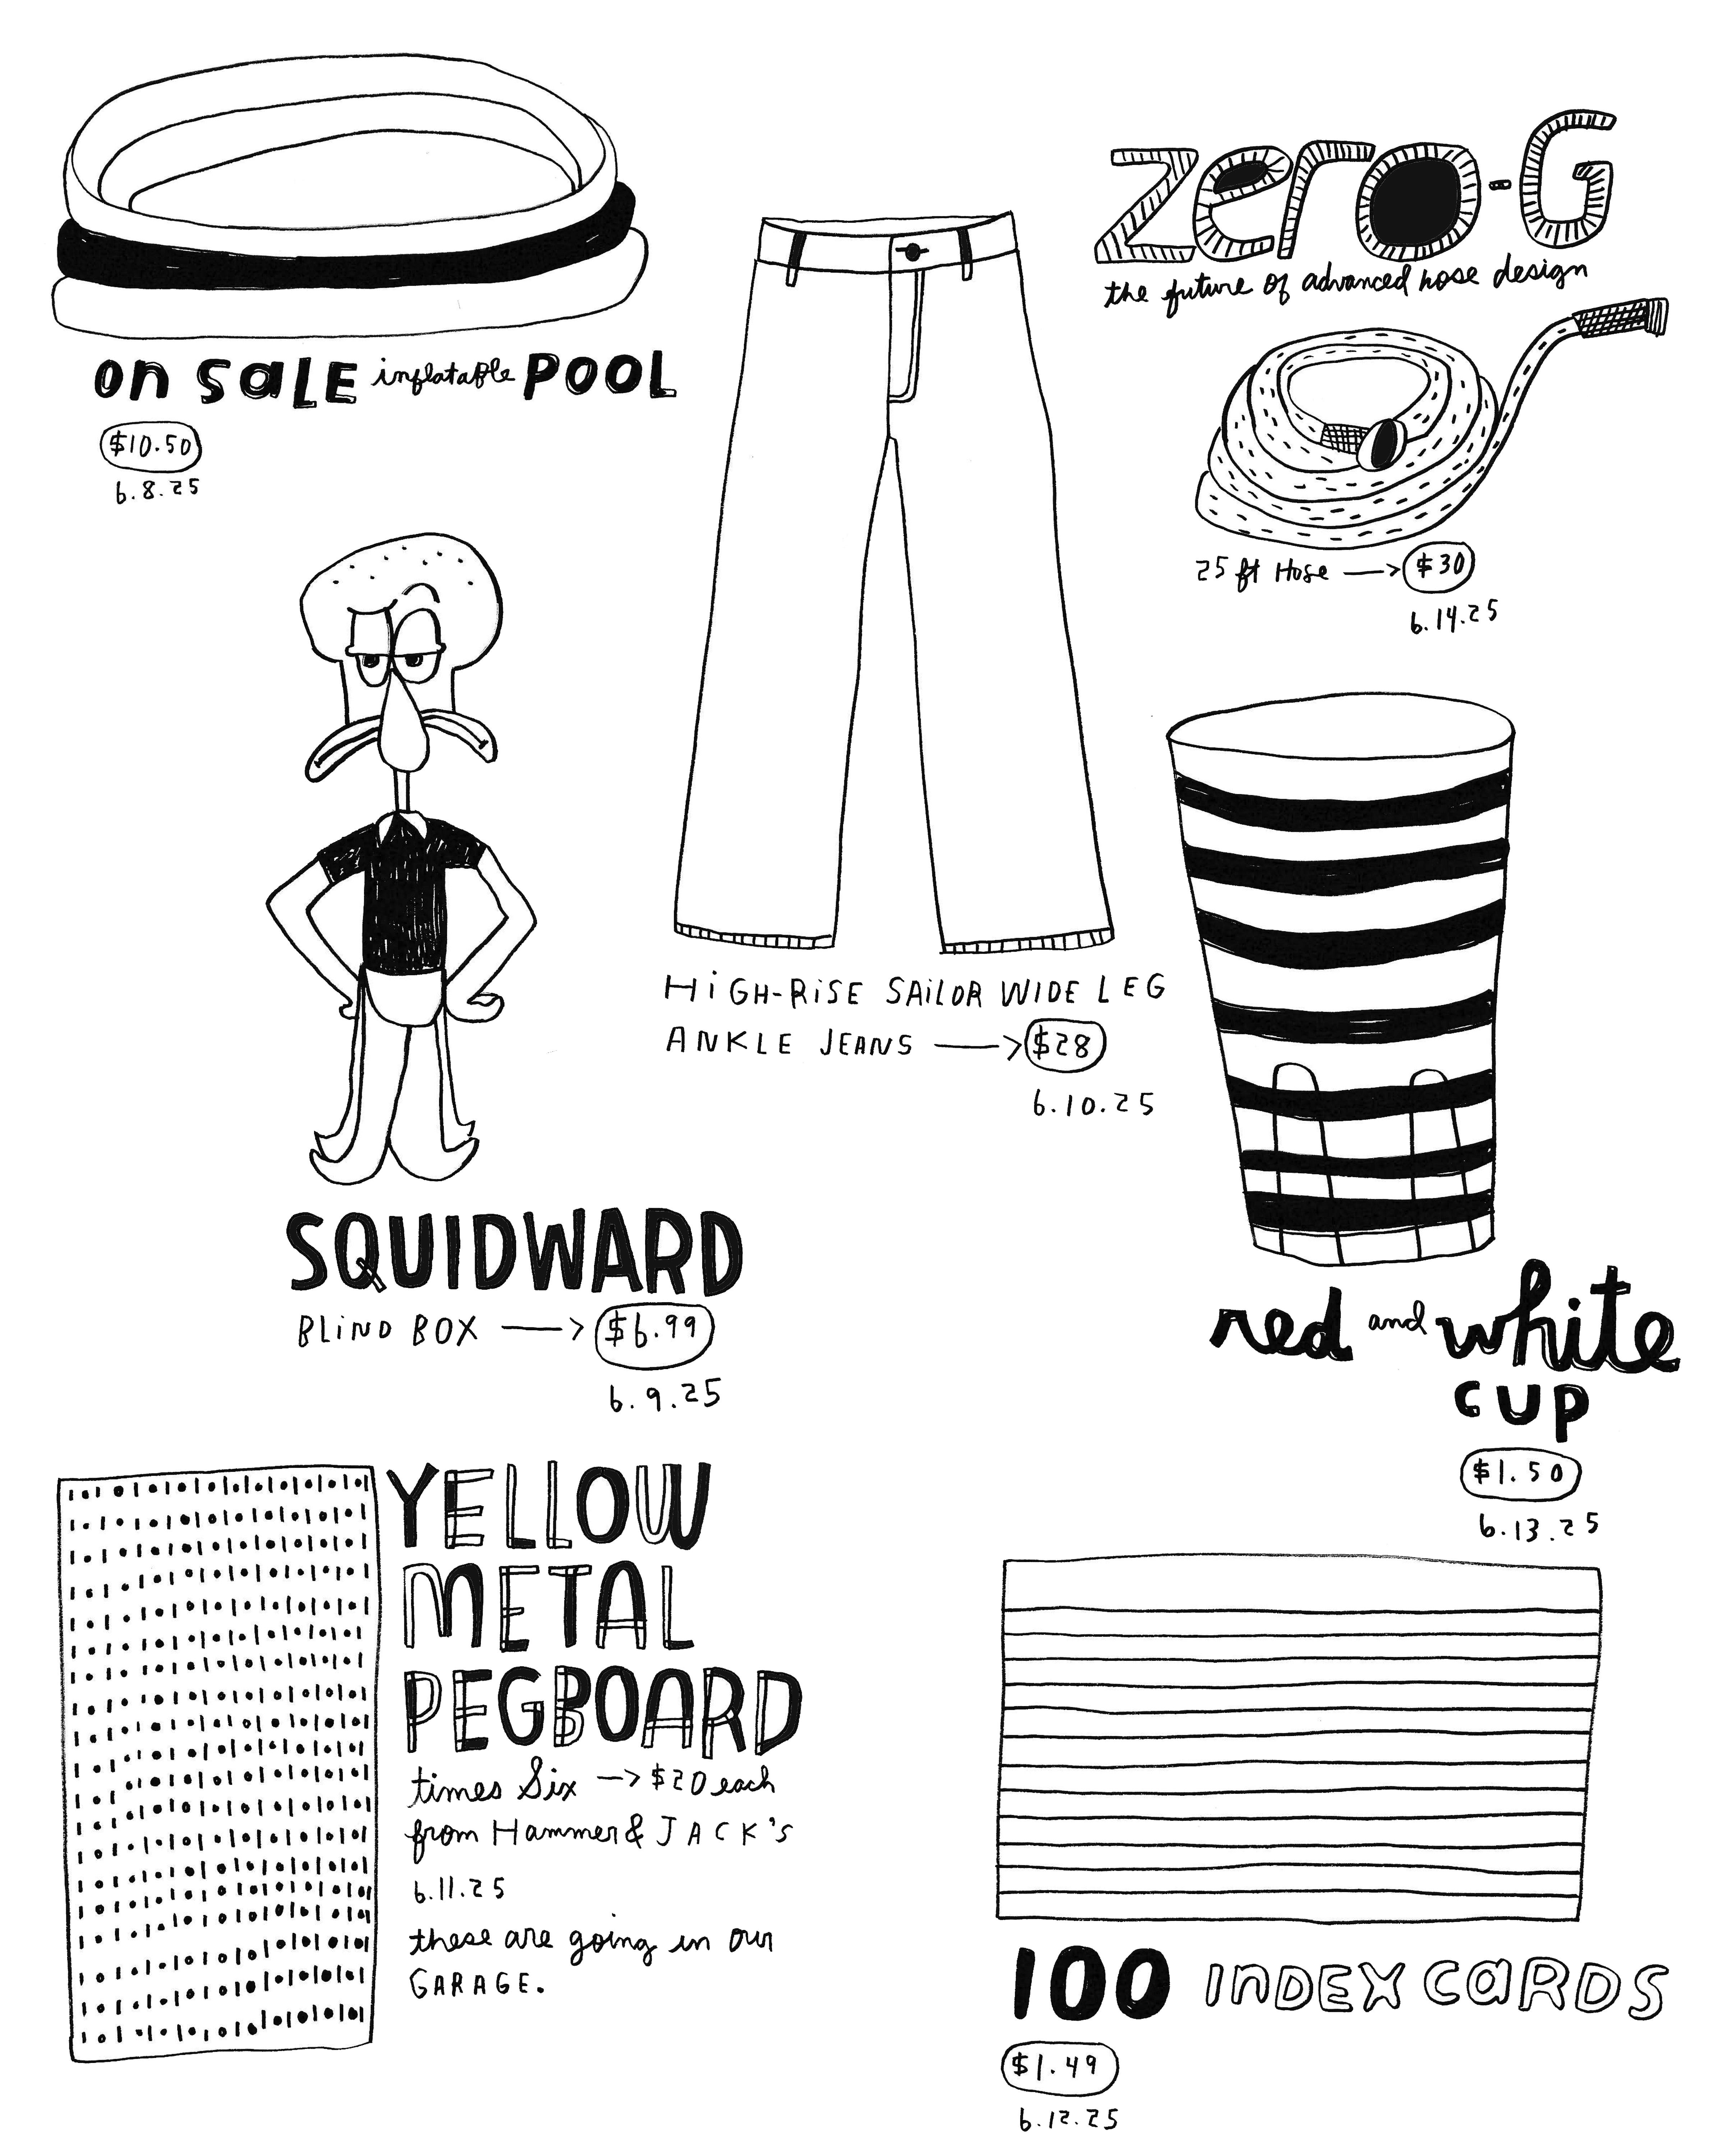 on SaLE inflatable POOL
$10.50
6.8.25
zero-G
the future of advanced hose design
25 ft Hose → $30
6.14.25
HiGH-RiSE SAiLOR WIDE LEG
ANKLE JEANS → $28
6.10.25
SQUIDWARD
BLiND BOX → $6.99
6.9.25
red and white
CUP
$1.50
6.13.25
YELLOW
METAL
PEGBOARD
times Six → $20 each
from Hammer & JACK'S
6.11.25
these are going in our
GARAGE.
100 InDEX CaRDS
$1.49
6.12.25